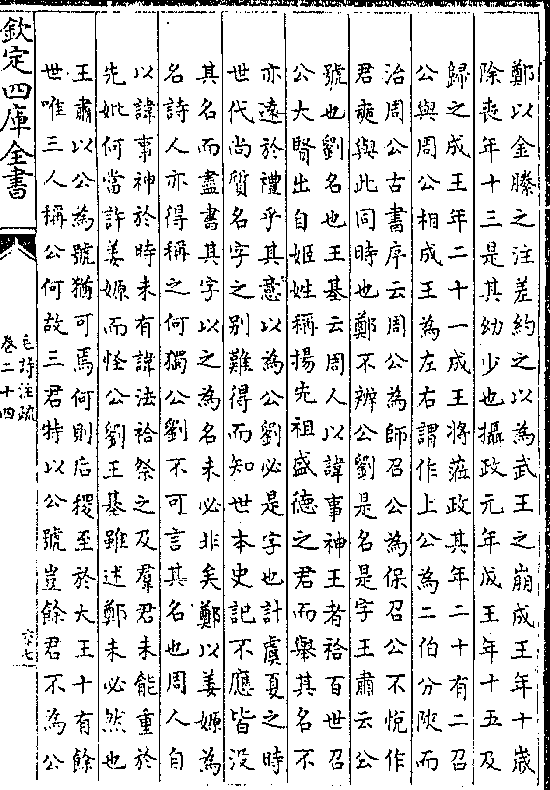 鄭以金縢之注差約之以為武王之崩成王年十歲
除喪年十三是其幼少也攝政元年成王年十五及
歸之成王年二十一成王將蒞政其年二十有二召
公與周公相成王為左右謂作上公為二伯分陜而
治周公古書序云周公為師召公為保召公不悅作
君奭與此同時也鄭不辨公劉是名是字王肅云公
號也劉名也王基云周人以諱事神王者祫百世召
公大賢出自姬姓稱揚先祖盛德之君而舉其名不
亦遠於禮乎其意以為公劉必是字也計虞夏之時
世代尚質名字之別難得而知世本史記不應皆没
其名而盡書其字以之為名未必非矣鄭以姜嫄為
名詩人亦得稱之何獨公劉不可言其名也周人自
以諱事神於時未有諱法祫祭之及羣君未能重於
先妣何當許姜嫄而怪公劉王基雖述鄭未必然也
王肅以公為號猶可焉何則后稷至於大王十有餘
世唯三人稱公何故三君特以公號豈餘君不為公
欽定四庫全書
毛詩注疏
卷二十四
六七